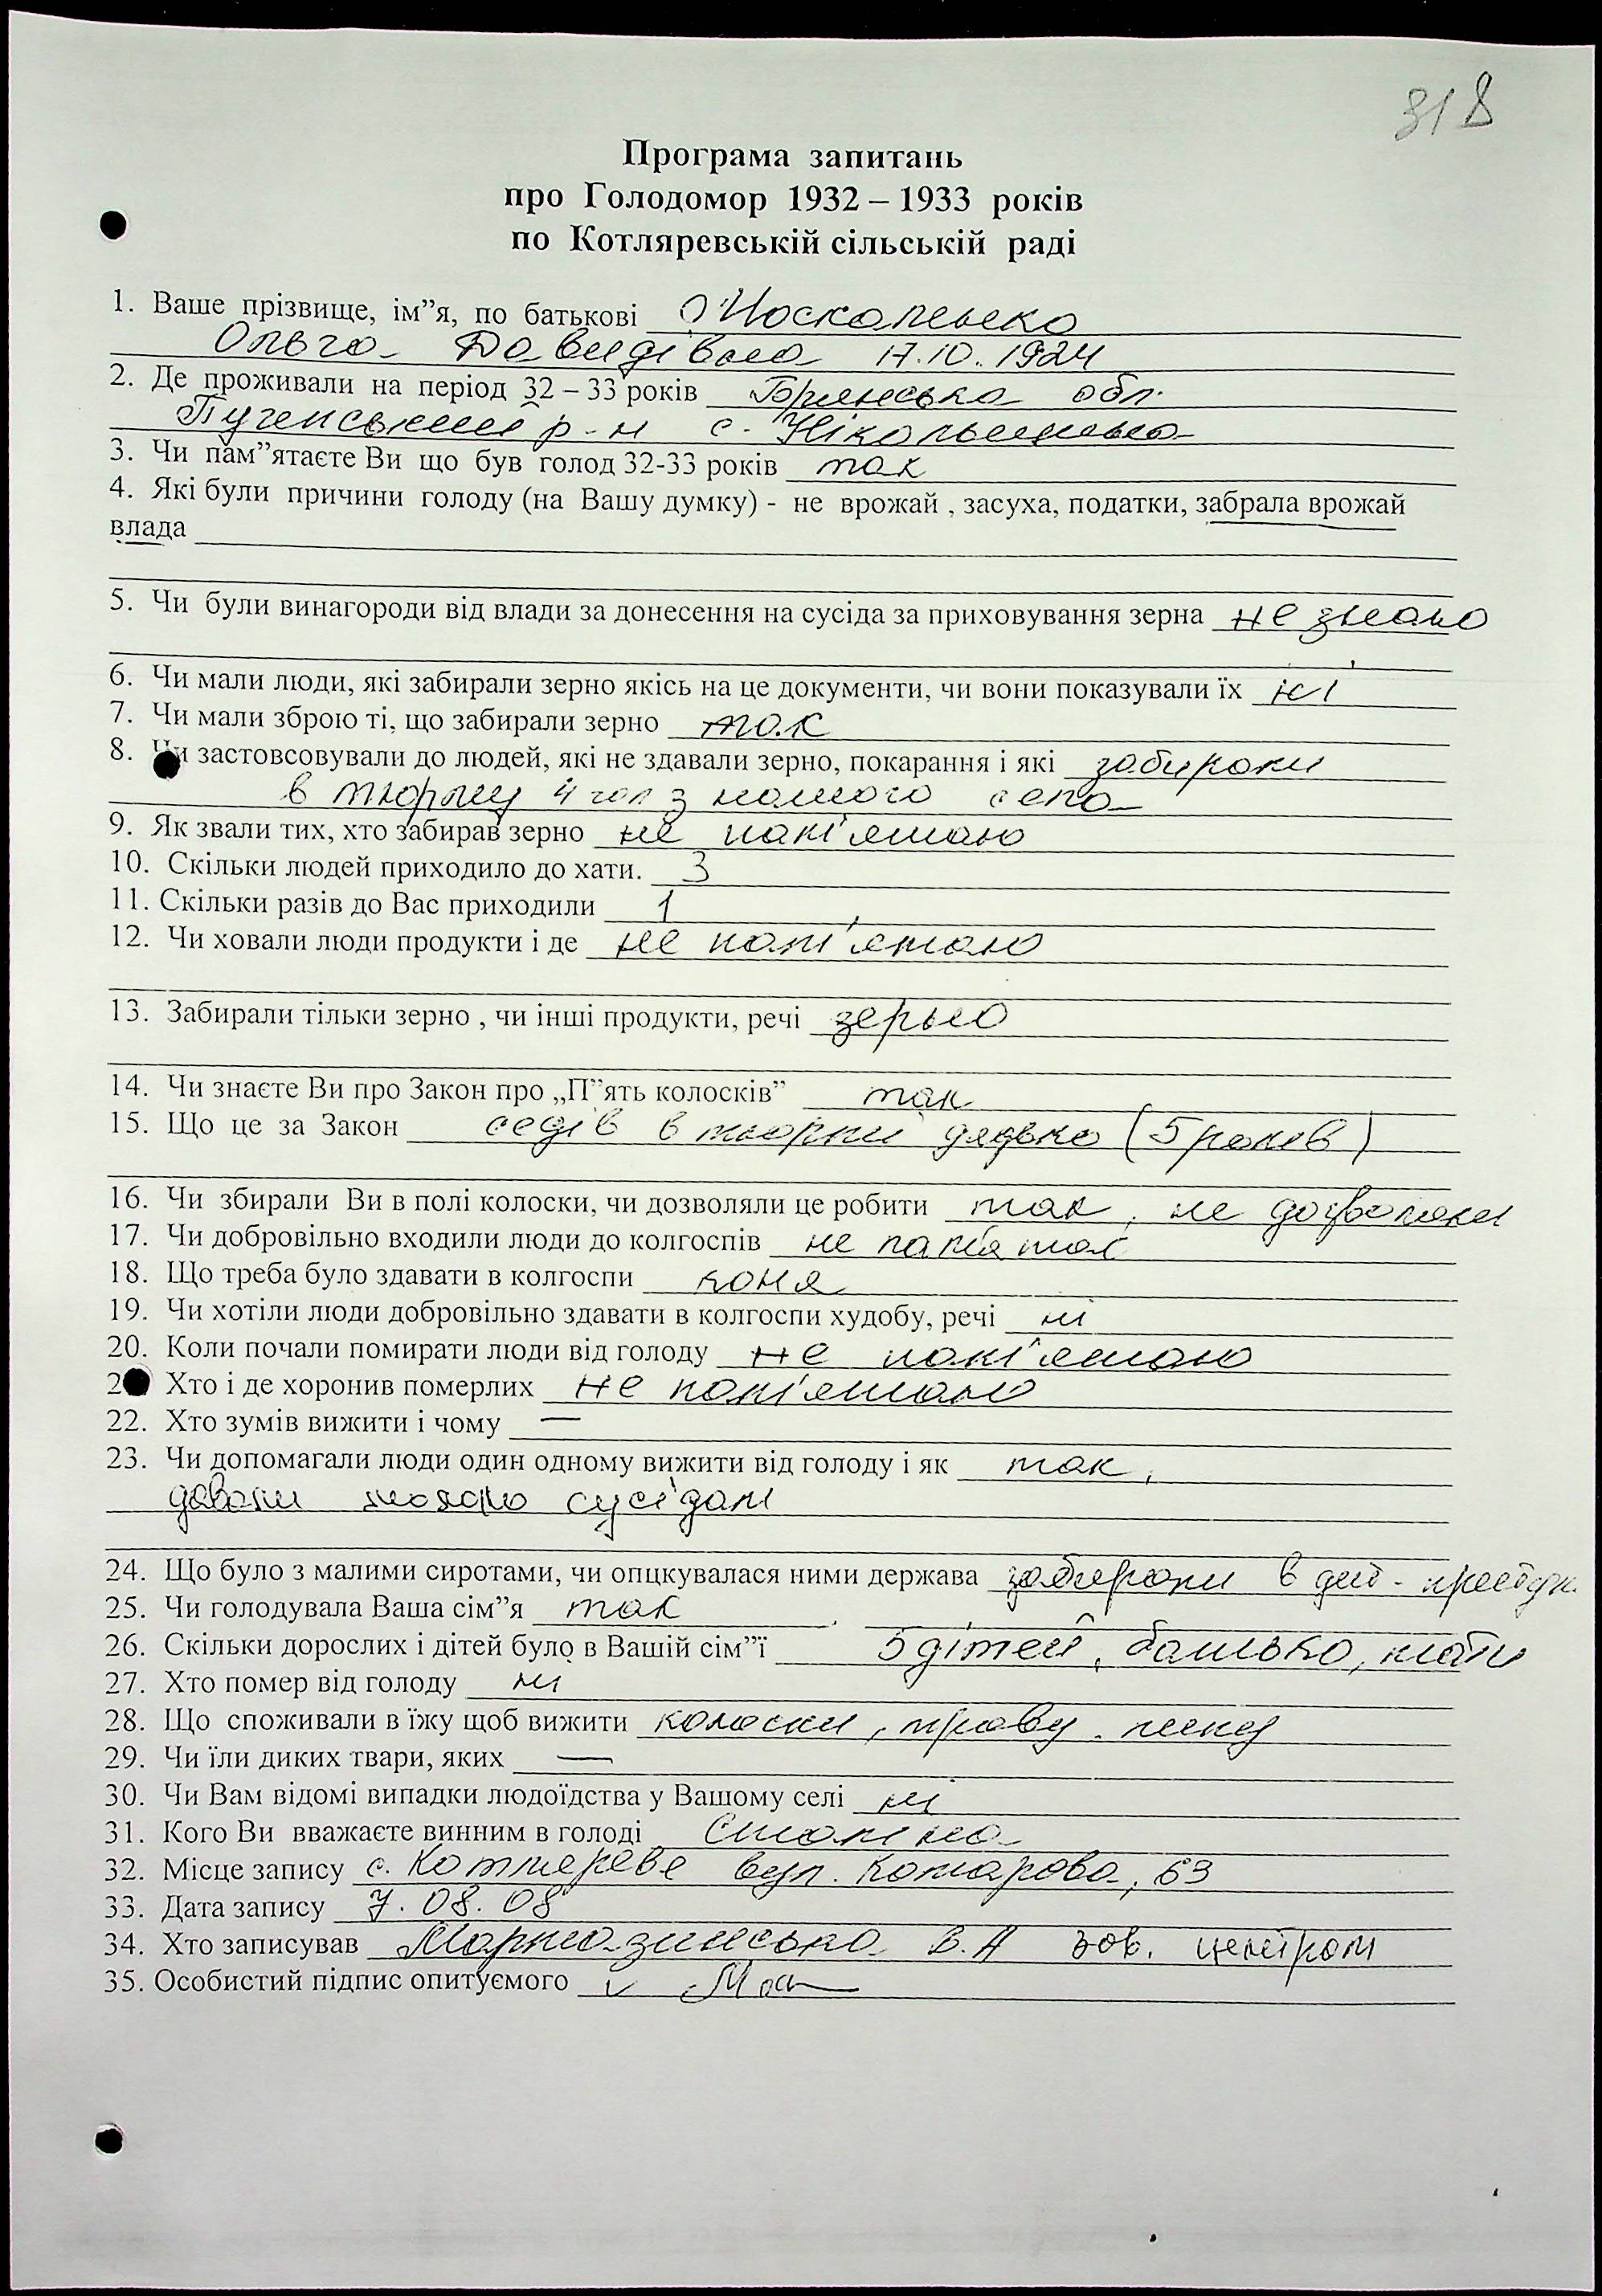 318
Програма запитань
про Голодомор 1932 – 1933 років
по Котляревській сільській раді
1. Ваше прізвище, ім”я, по батькові Москаленко
Ольга Давидівна 17.10.1924
2. Де проживали на період 32 – 33 років Брянська обл.
р-н с.
3. Чи пам”ятаєте Ви що був голод 32-33 років так
4. Які були причини голоду (на Вашу думку) - не врожай , засуха, податки, забрала врожай
влада
5. Чи були винагороди від влади за донесення на сусіда за приховування зерна не знаю
6. Чи мали люди, які забирали зерно якісь на це документи, чи вони показували їх ні
7. Чи мали зброю ті, що забирали зерно так
8. Чи застовсовували до людей, які не здавали зерно, покарання і які забирали
в тюрму 4 чол з нашого села
9. Як звали тих, хто забирав зерно не пам'ятаю
10. Скільки людей приходило до хати. 3
11. Скільки разів до Вас приходили 1
12. Чи ховали люди продукти і де не пам'ятаю
13. Забирали тільки зерно , чи інші продукти, речі зерно
14. Чи знаєте Ви про Закон про „П”ять колосків” так
15. Що це за Закон седів в тюрми дядько (5 років)
16. Чи збирали Ви в полі колоски, чи дозволяли це робити так, не дозволяли
17. Чи добровільно входили люди до колгоспів не
18. Що треба було здавати в колгоспи коня
19. Чи хотіли люди добровільно здавати в колгоспи худобу, речі ні
20. Коли почали помирати люди від голоду не пам'ятаю
2 Хто і де хоронив померлих не пам'ятаю
22. Хто зумів вижити і чому —
23. Чи допомагали люди один одному вижити від голоду і як так,
давали сусідам
24. Що було з малими сиротами, чи опцкувалася ними держава забирали в дит.
25. Чи голодувала Ваша сім”я так
26. Скільки дорослих і дітей було в Вашій сім”ї 5 дітей, батько, мати
27. Хто помер від голоду ні
28. Що споживали в їжу щоб вижити колоски, траву, липу
29. Чи їли диких твари, яких —
30. Чи Вам відомі випадки людоїдства у Вашому селі ні
31. Кого Ви вважаєте винним в голоді Сталіна
32. Місце запису с. Котляреве вул. Комарова, 63
33. Дата запису 7.08.08
34. Хто записував В.А зав. центром
35. Особистий підпис опитуємого v